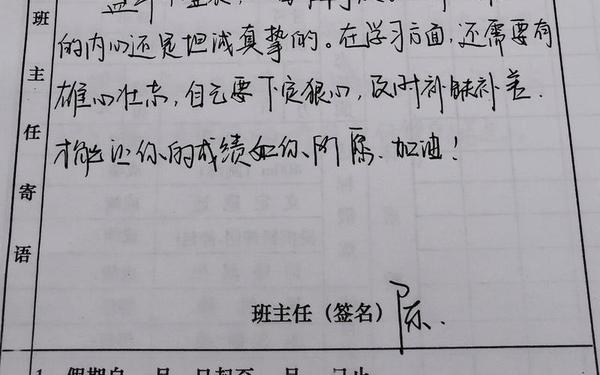 的内心还是坦诚真挚的。在学习方面，还需要有
雄心壮志，自己要下定狠心，及时补缺补差.
才能让你的成绩如你所愿.加油！
班主任寄语
班主任（签名）陈.